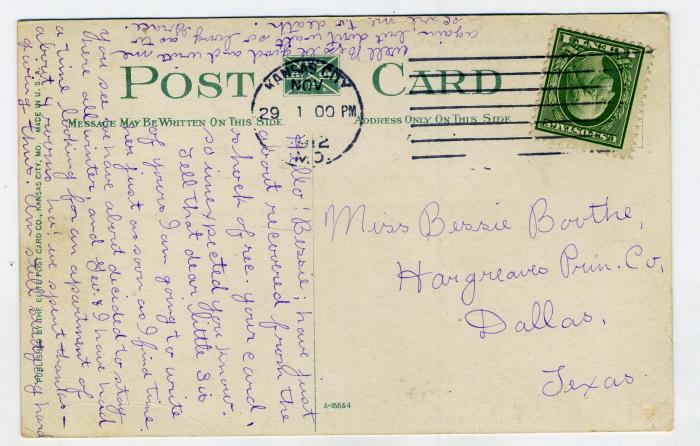 POST CARD
MESSAGE MAY BE WRITTEN ON THIS SIDE.
ADDRESS ONLY ON THIS SIDE
KANSAS CITY
NOV
29 1 00 PM
1912
MO.
U.S. POSTAGE
Miss Bessie Boothe,
Hargreaves Prin. Co,
Dallas,
Texas.
Hello! Bessie; have just
about recovered from the
shock of rec. your card,
so unexpected you know.
Tell that dear little Sis
of yours I am going to write
her just as soon as I find time
You see we have about decided to stay
here all winter, and Geo. & I have had
a time looking for an apartment of
about 4 rooms. ha! we spent thanks-
giving thus. Am still studying hard
Well Bessie be good and write me
again, but don't wait so long as to
scare me to death. Grace.
PUBLISHED BY THE ELITE POST CARD CO., KANSAS CITY, MO. MADE IN U.S.A.
A-16664